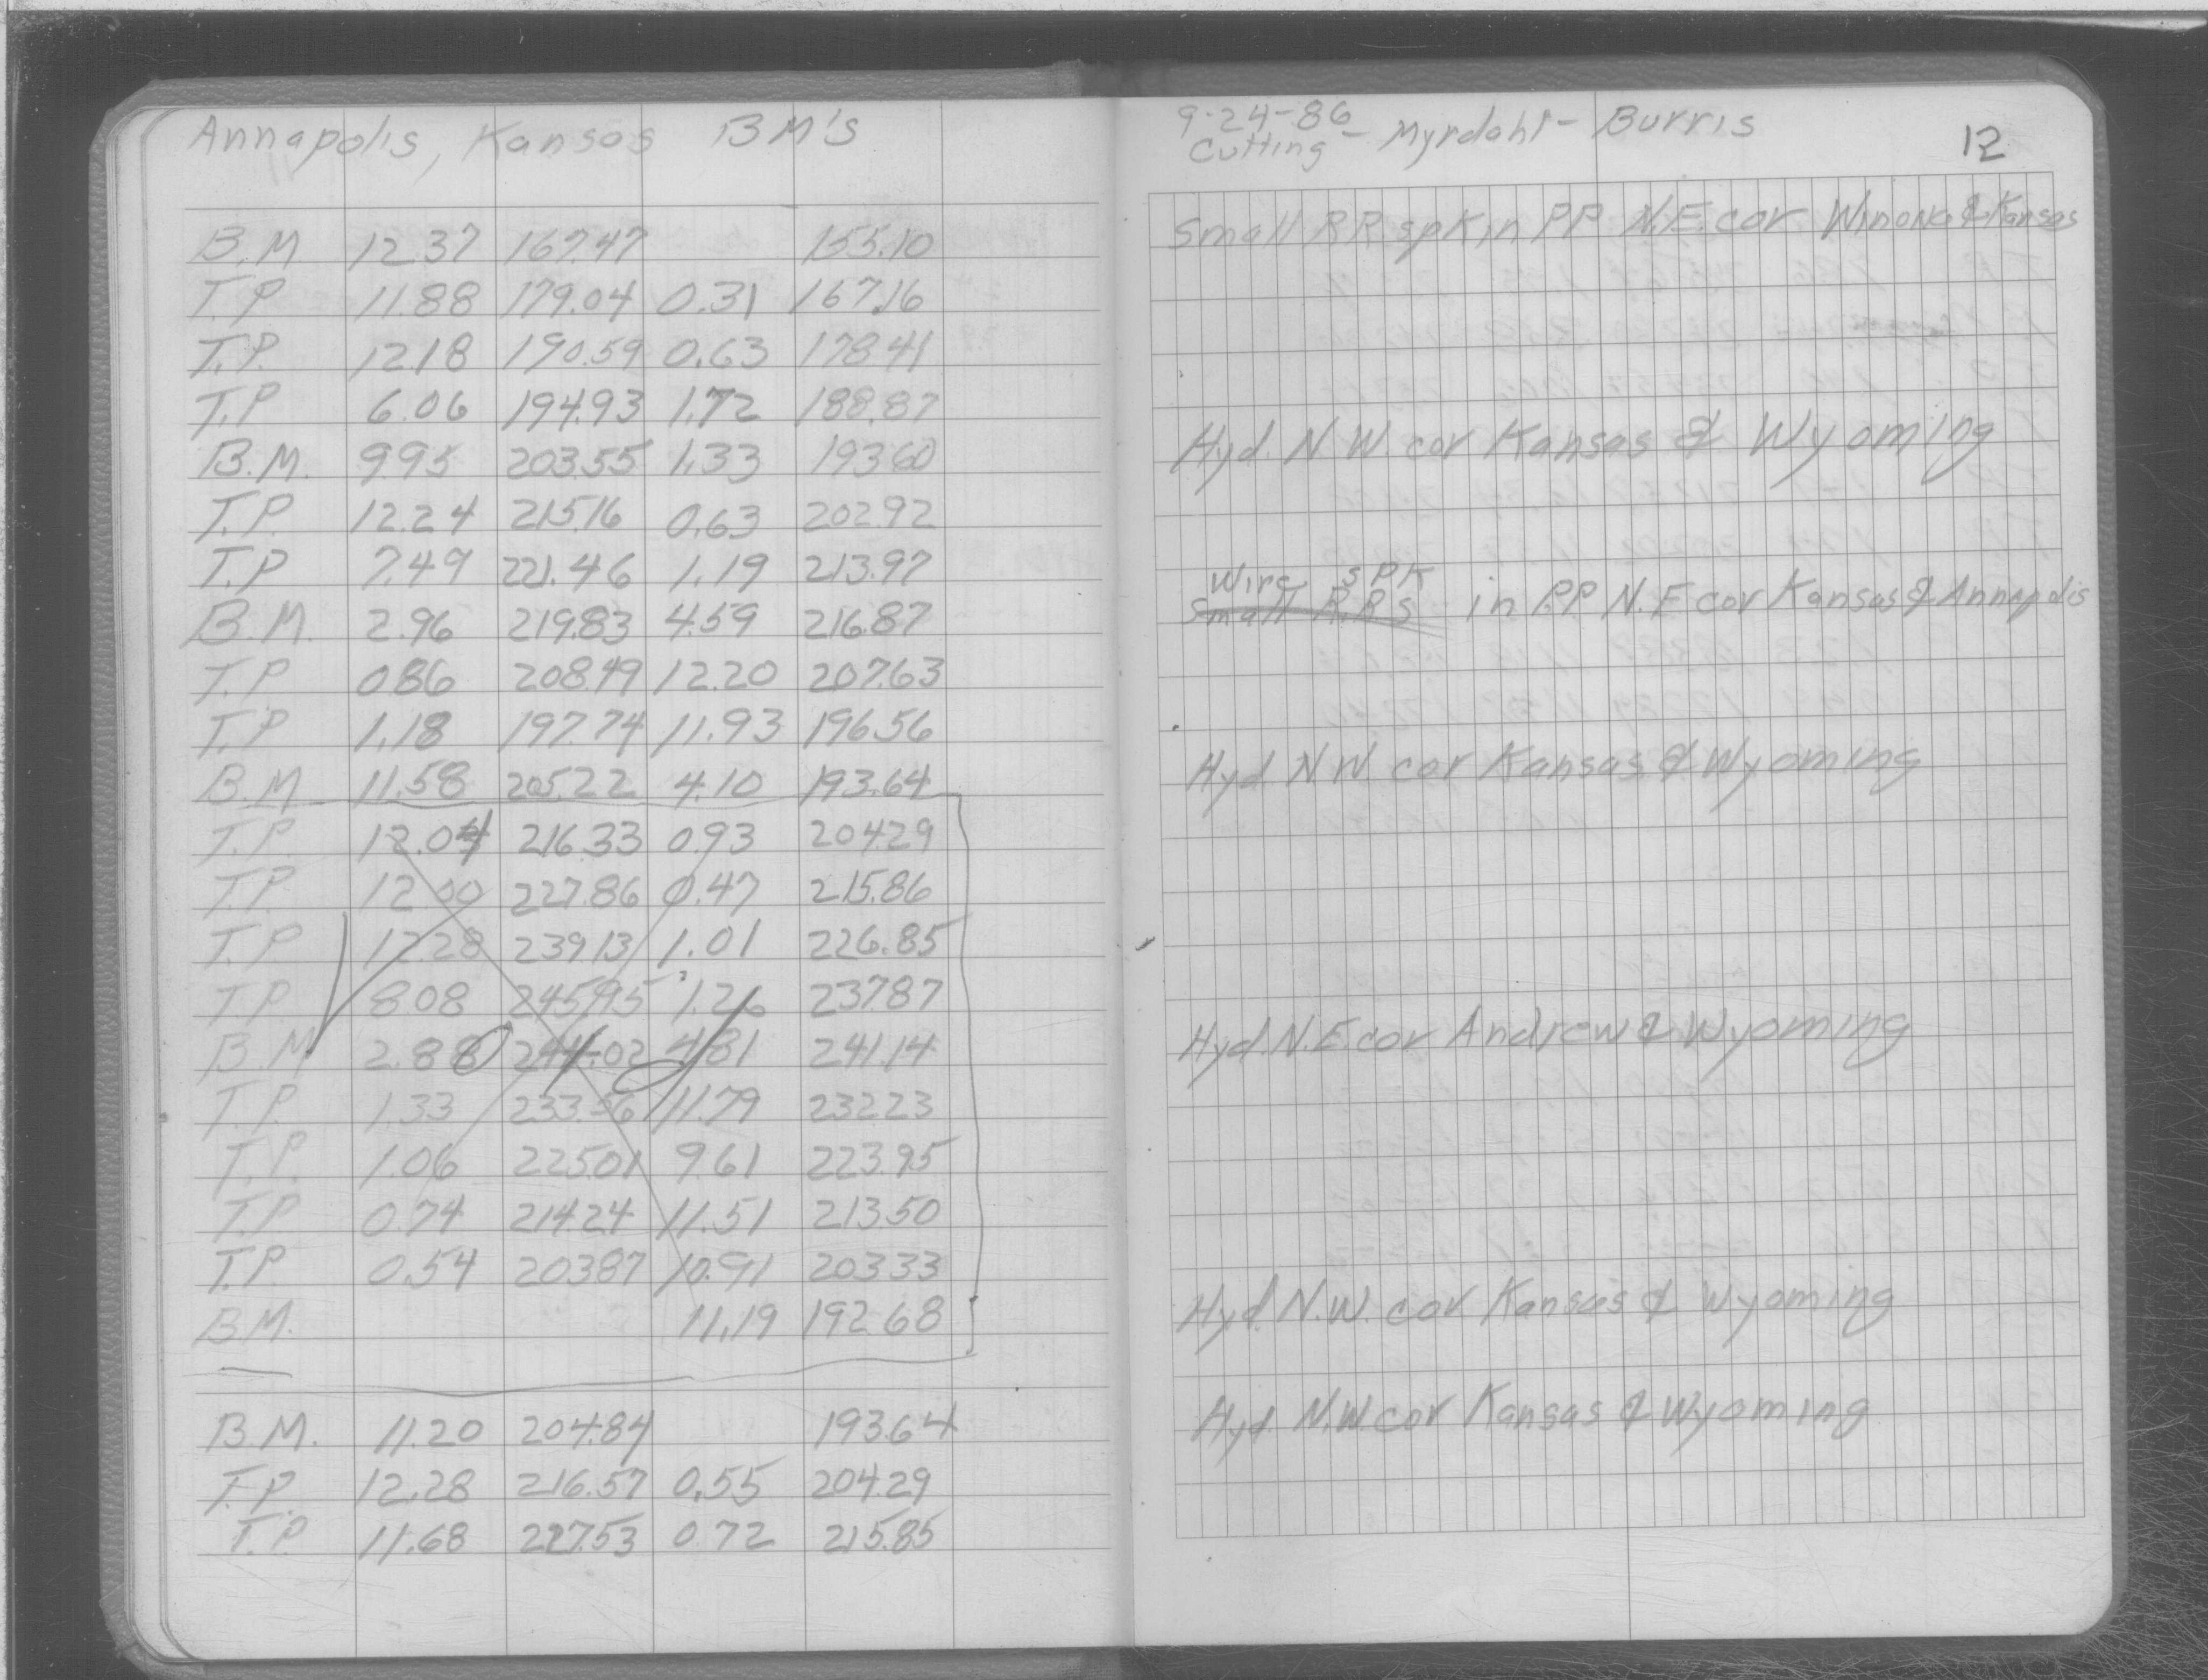 Annapolis, Kansas BM's
B.M 12.37 167.47 155.10
T.P 11.88 179.04 0.31 167.16
T.P. 12.18 190.59 0.63 178.41
T.P 6.06 194.93 1.72 188.87
B.M. 9.95 203.55 1.33 193.60
T.P. 12.24 215.16 0.63 202.92
T.P 7.49 221.46 1.19 213.97
B.M. 2.96 219.83 4.59 216.87
T.P 0.86 208.49 12.20 207.63
T.P 1.18 197.74 11.93 196.56
B.M 11.58 205.22 4.10 193.64
T.P 12.04 216.33 0.93 204.29
T.P. 12.00 227.86 0.47 215.86
T.P 12.28 239.13 1.01 226.85
T.P. 8.08 245.95 1.26 237.87
B.M 2.88 244.02 4.81 241.14
T.P. 1.33 233.56 11.79 232.23
T.P. 1.06 225.01 9.61 223.95
T.P 0.74 214.24 11.51 213.50
T.P. 0.54 203.87 10.91 203.33
B.M. 11.19 192.68
B.M. 11.20 204.84 193.64
T.P. 12.28 216.57 0.55 204.29
T.P. 11.68 227.53 0.72 215.85
9-24-86
Cutting - Myrdahl - Burris
12
Small RR spk in PP N.E. cor Winona & Kansas
Hyd. N.W. cor Kansas & Wyoming
Wire SPK
Small R.R S in P.P N.E cor Kansas & Annapolis
Hyd N W. cor Kansas & Wyoming
Hyd. N.E. cor Andrew & Wyoming
Hyd. N.W. cor Kansas & Wyoming
Hyd N.W. cor Kansas & Wyoming